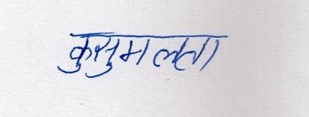 कुसुमलता